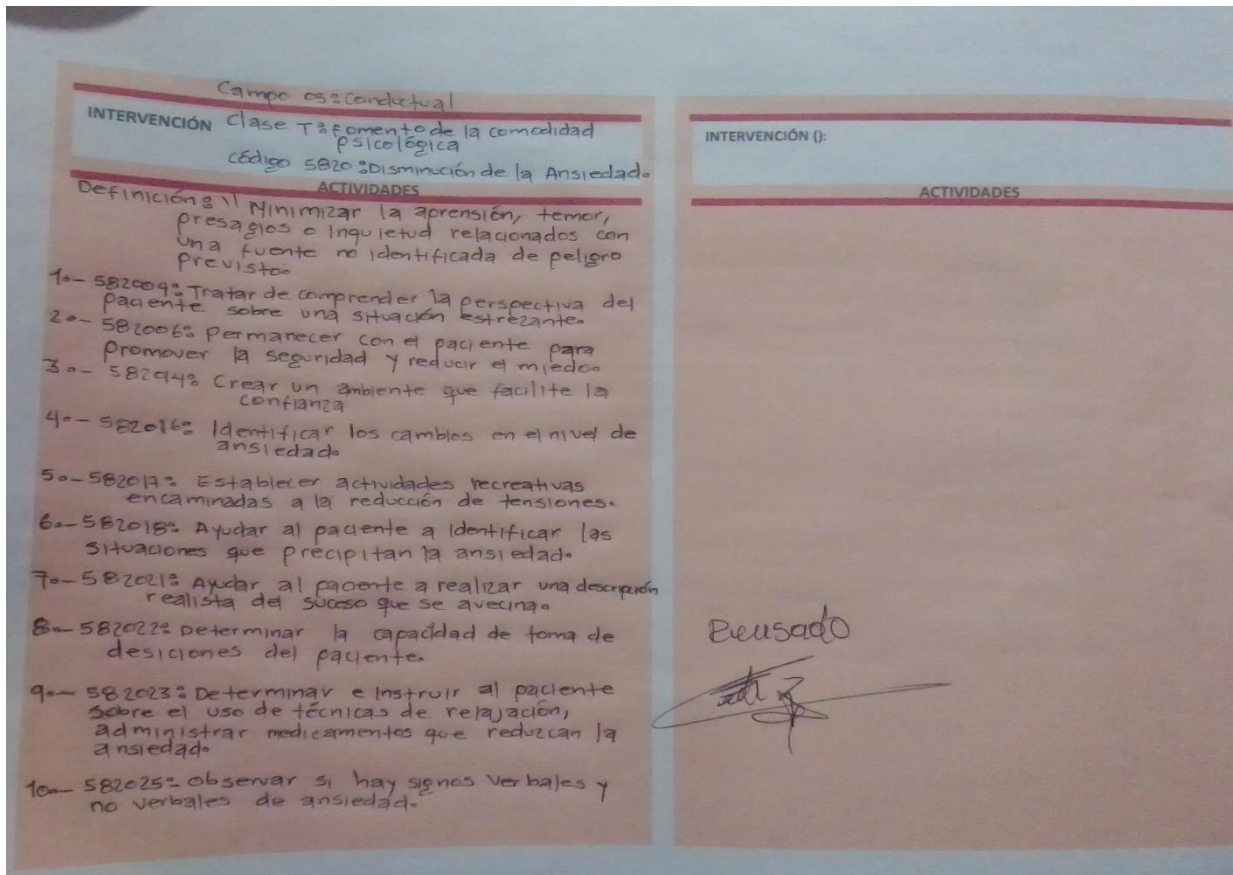 Campo 03: Conductual
INTERVENCIÓN Clase T: Fomento de la comodidad
psicológica
código 5820: Disminución de la Ansiedad.
ACTIVIDADES
Definición: Minimizar la aprensión, temor,
presagios o inquietud relacionados con
una fuente no identificada de peligro
previsto.
1.- 582004: Tratar de comprender la perspectiva del
paciente sobre una situación estrezante.
2.- 582006: Permanecer con el paciente para
promover la seguridad y reducir el miedo.
3.- 582014: Crear un ambiente que facilite la
confianza
4.- 582016: Identificar los cambios en el nivel de
ansiedad.
5.- 582017: Establecer actividades recreativas
encaminadas a la reducción de tensiones.
6.- 582018: Ayudar al paciente a identificar las
situaciones que precipitan la ansiedad.
7.- 582021: Ayudar al paciente a realizar una descripción
realista del suceso que se avecina.
8.- 582022: Determinar la capacidad de toma de
desiciones del paciente.
9.- 582023: Determinar e instruir al paciente
sobre el uso de técnicas de relajación,
administrar medicamentos que reduzcan la
ansiedad.
10.- 582025: Observar si hay signos verbales y
no verbales de ansiedad.
INTERVENCIÓN ():
ACTIVIDADES
Revisado